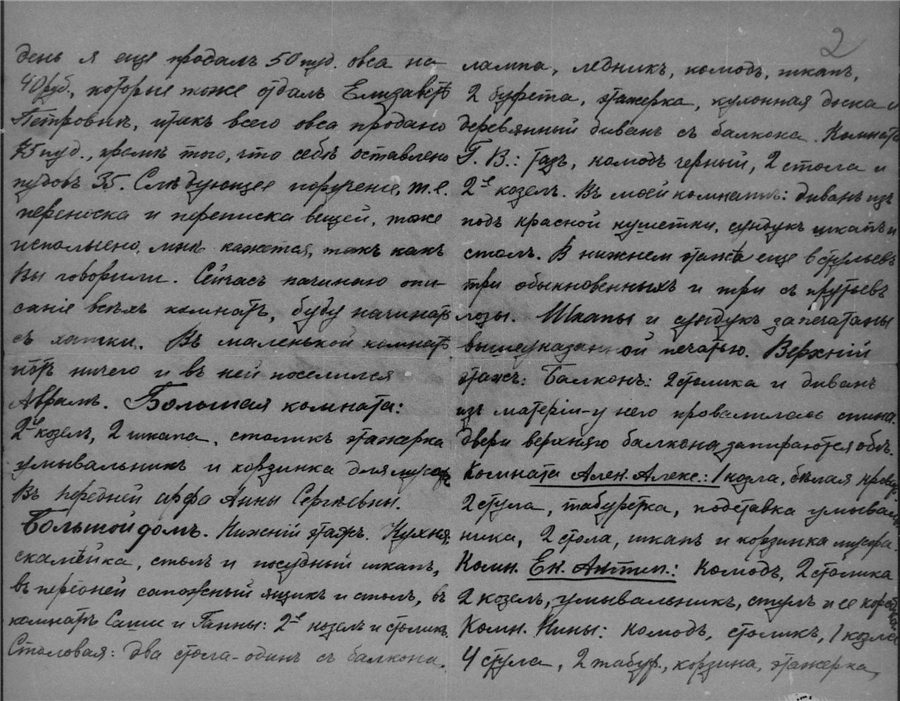 день я еще продалъ 50 пуд. овса на
40 руб., которые тоже отдалъ Елизаветѣ
Петровнѣ, итакъ всего овса продано
75 пуд., кромѣ того, что себѣ оставлено
пудовъ 35. Слѣдующее порученіе, т.е.
переноска и переписка вещей, тоже
исполнено, мнѣ кажется, такъ какъ
Вы говорили. Сейчасъ начинаю опи
саніе всѣхъ комнатъ, буду начинать
съ хатки. Въ маленькой комнатѣ
нѣтъ ничего и въ ней поселился
Аврамъ. Большая комната:
2е козелъ, 2 шкапа, столикъ этажерка
умывальникъ и корзинка для мусора
Въ передней арфа Анны Сергѣевны.
Большой домъ. Нижній этажъ. Кухня:
скамейка, столъ и посудный шкапъ,
въ передней сапожный ящикъ и столъ, въ
комнатѣ Саши и Ганны: 2е козелъ и столикъ.
Столовая: два стола - одинъ съ балкона.
2
лампа, ледникъ, комодъ, шкапъ,
2 буфета, этажерка, кухонная доска и
деревянный диванъ съ балкона. Комната
Г. В.: Тазъ, комодъ черный, 2 стола и
2е козелъ. Въ моей комнатѣ: диванъ изъ
подъ красной кушетки, сундукъ шкапъ и
столъ. В нижнемъ этажѣ еще 6 стульевъ
три обыкновенныхъ и три съ прутьевъ
лозы. Шкапы и сундукъ запечатаны
вышеуказанной печатью. Верхній
этажъ: Балконъ: 2 столика и диванъ
изъ матеріи - у него провалилась спина.
двери верхняго балкона запираются обѣ.
Комната Ален. Алекс.: 1 козла, бѣлая кровать
2 стула, табуретка, подставка умываль
ника, 2 стола, шкапъ и корзинка мусора.
Комн. Ек. Антип.: Комодъ, 2 столика
2 козелъ, умывальникъ, стулъ и ее
Комн. Нины: комодъ, столикъ, 1 козла
4 стула, 2 табур., корзина, этажерка,